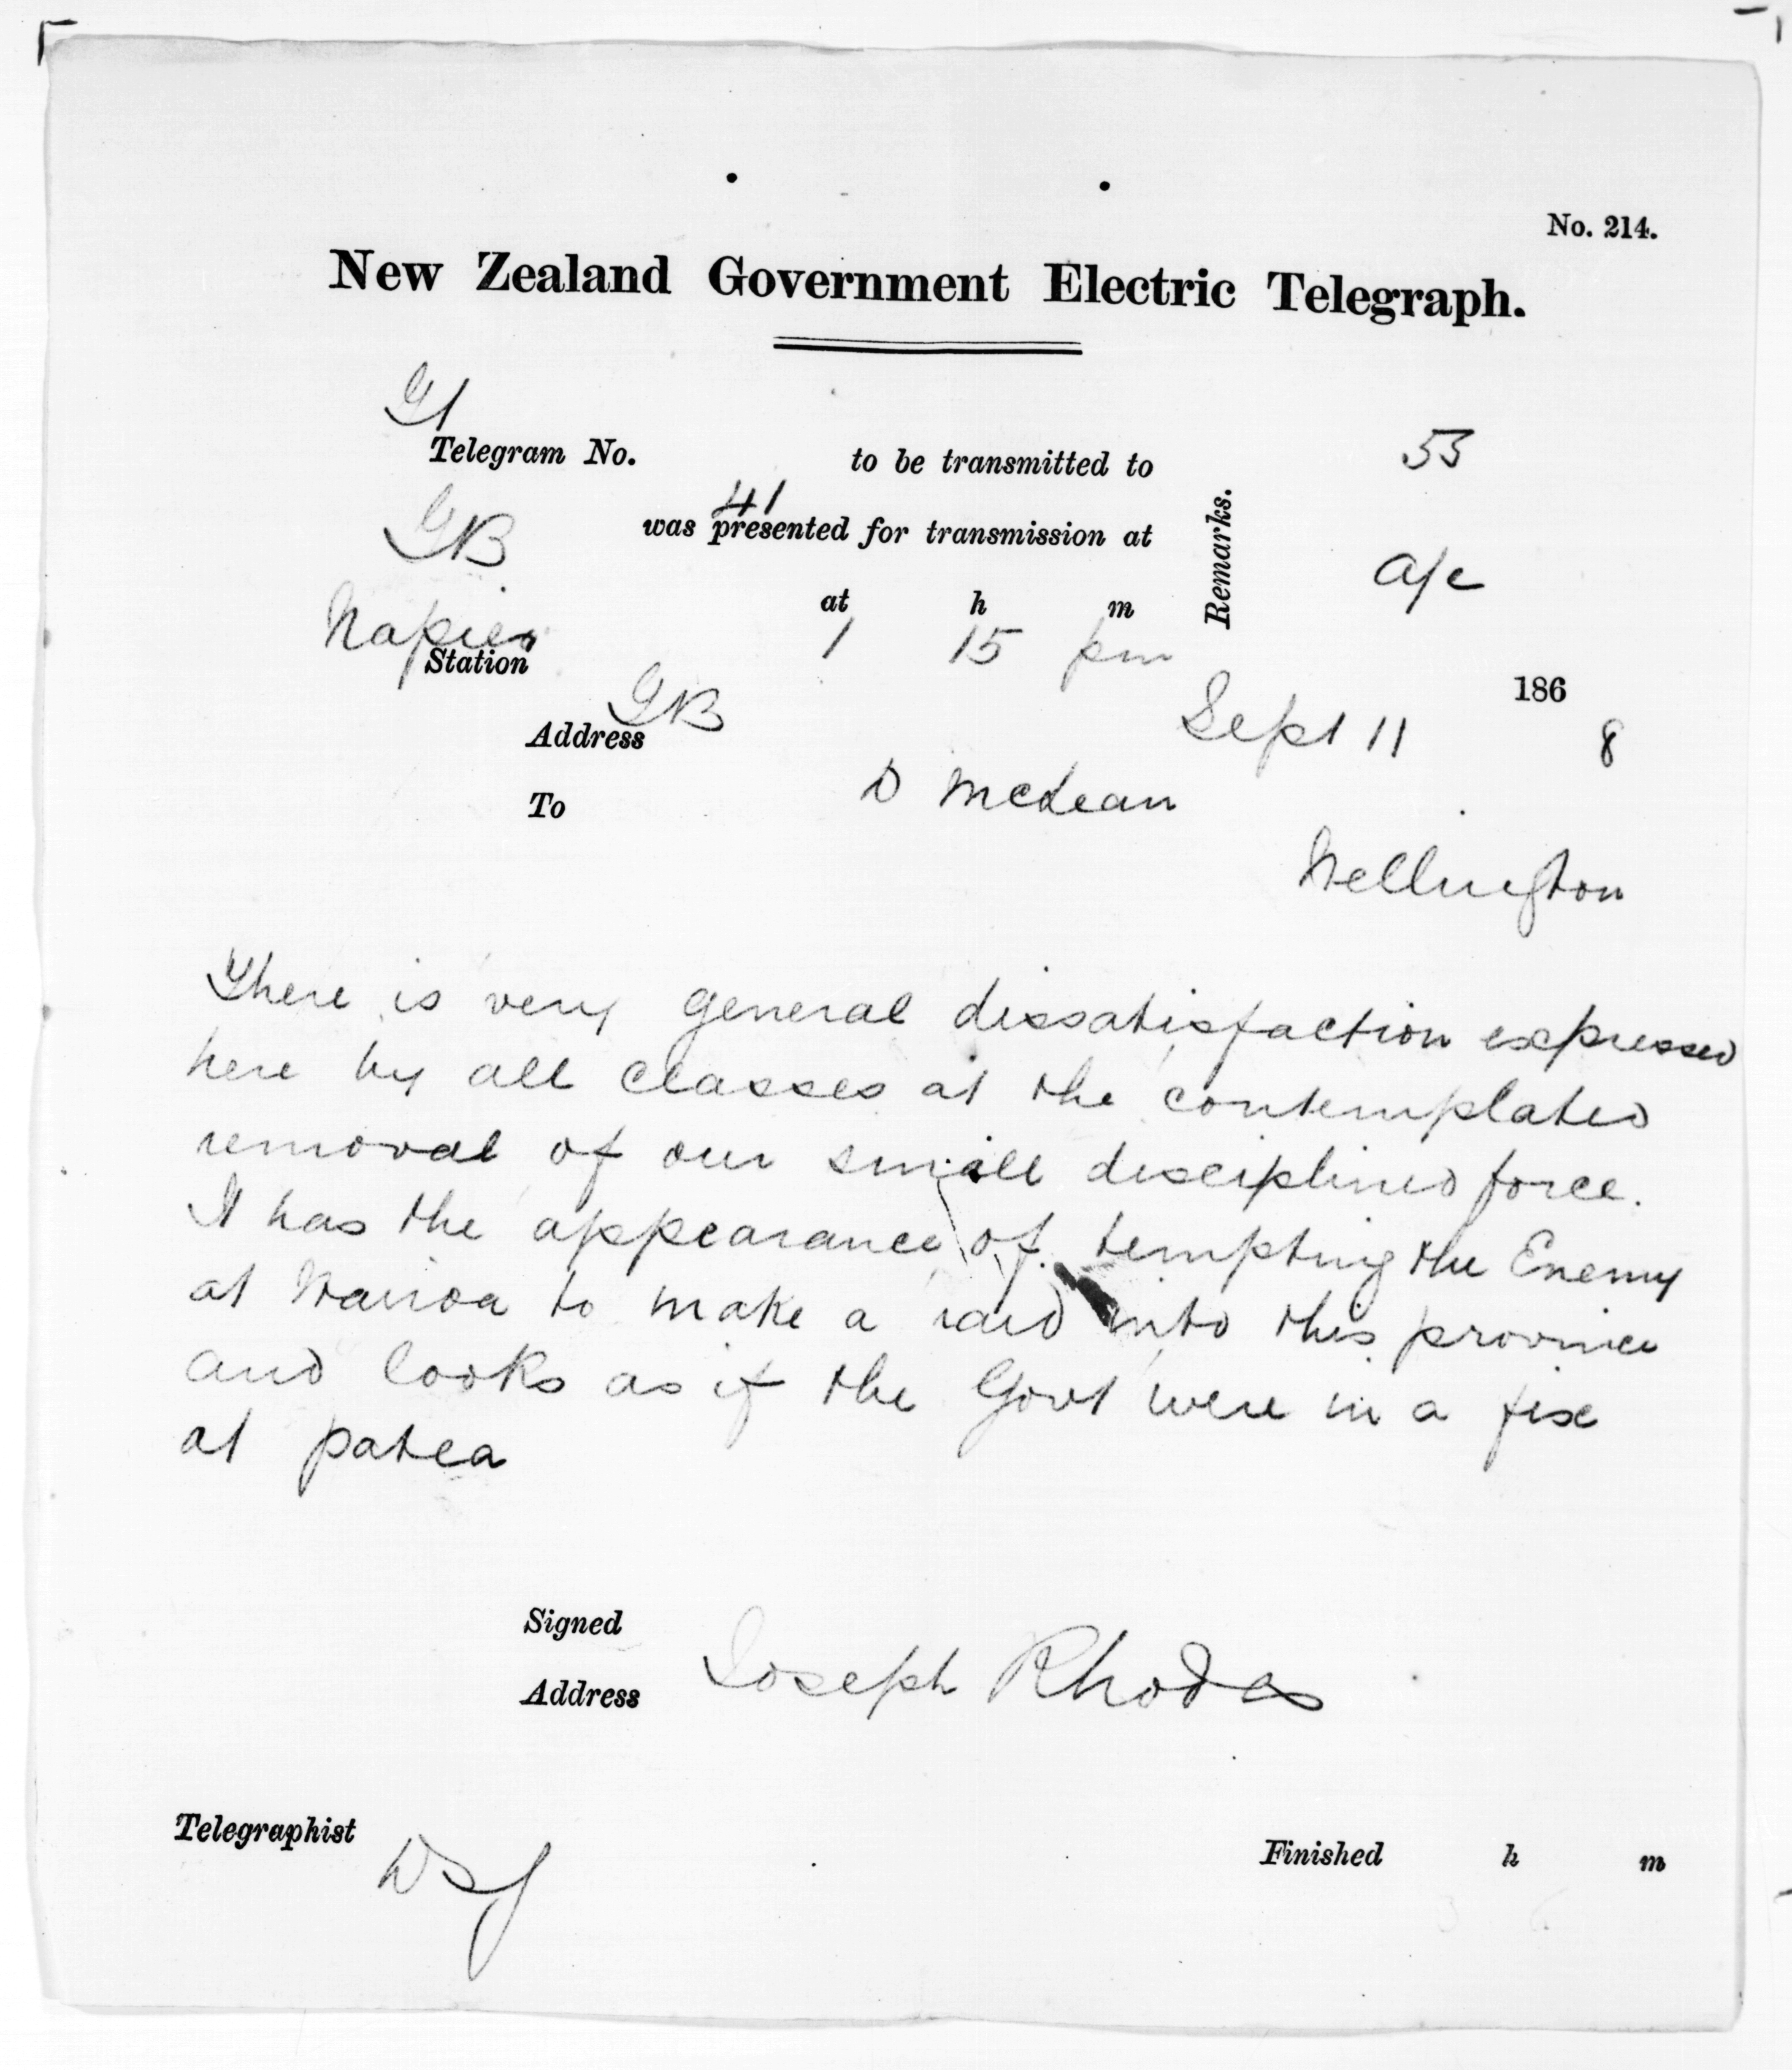 No. 214.
New Zealand Government Electric Telegraph.
Telegram No. to be transmitted to
53
41
GB was presented for transmission at
Remarks.
a/c
at h m
Napier 1 15 pm
Station
186
GB Sept 11 8
Address
To D McLean
Wellington
There is very general dissatisfaction expressed
here by all classes at the contemplated
removal of our small disciplined force.
It has the appearance of tempting the Enemy
at Wairoa to make a raid into this province
and looks as if the Govt were in a fix
at patea
Signed
Joseph Rhodes
Address
Telegraphist
Finished h m